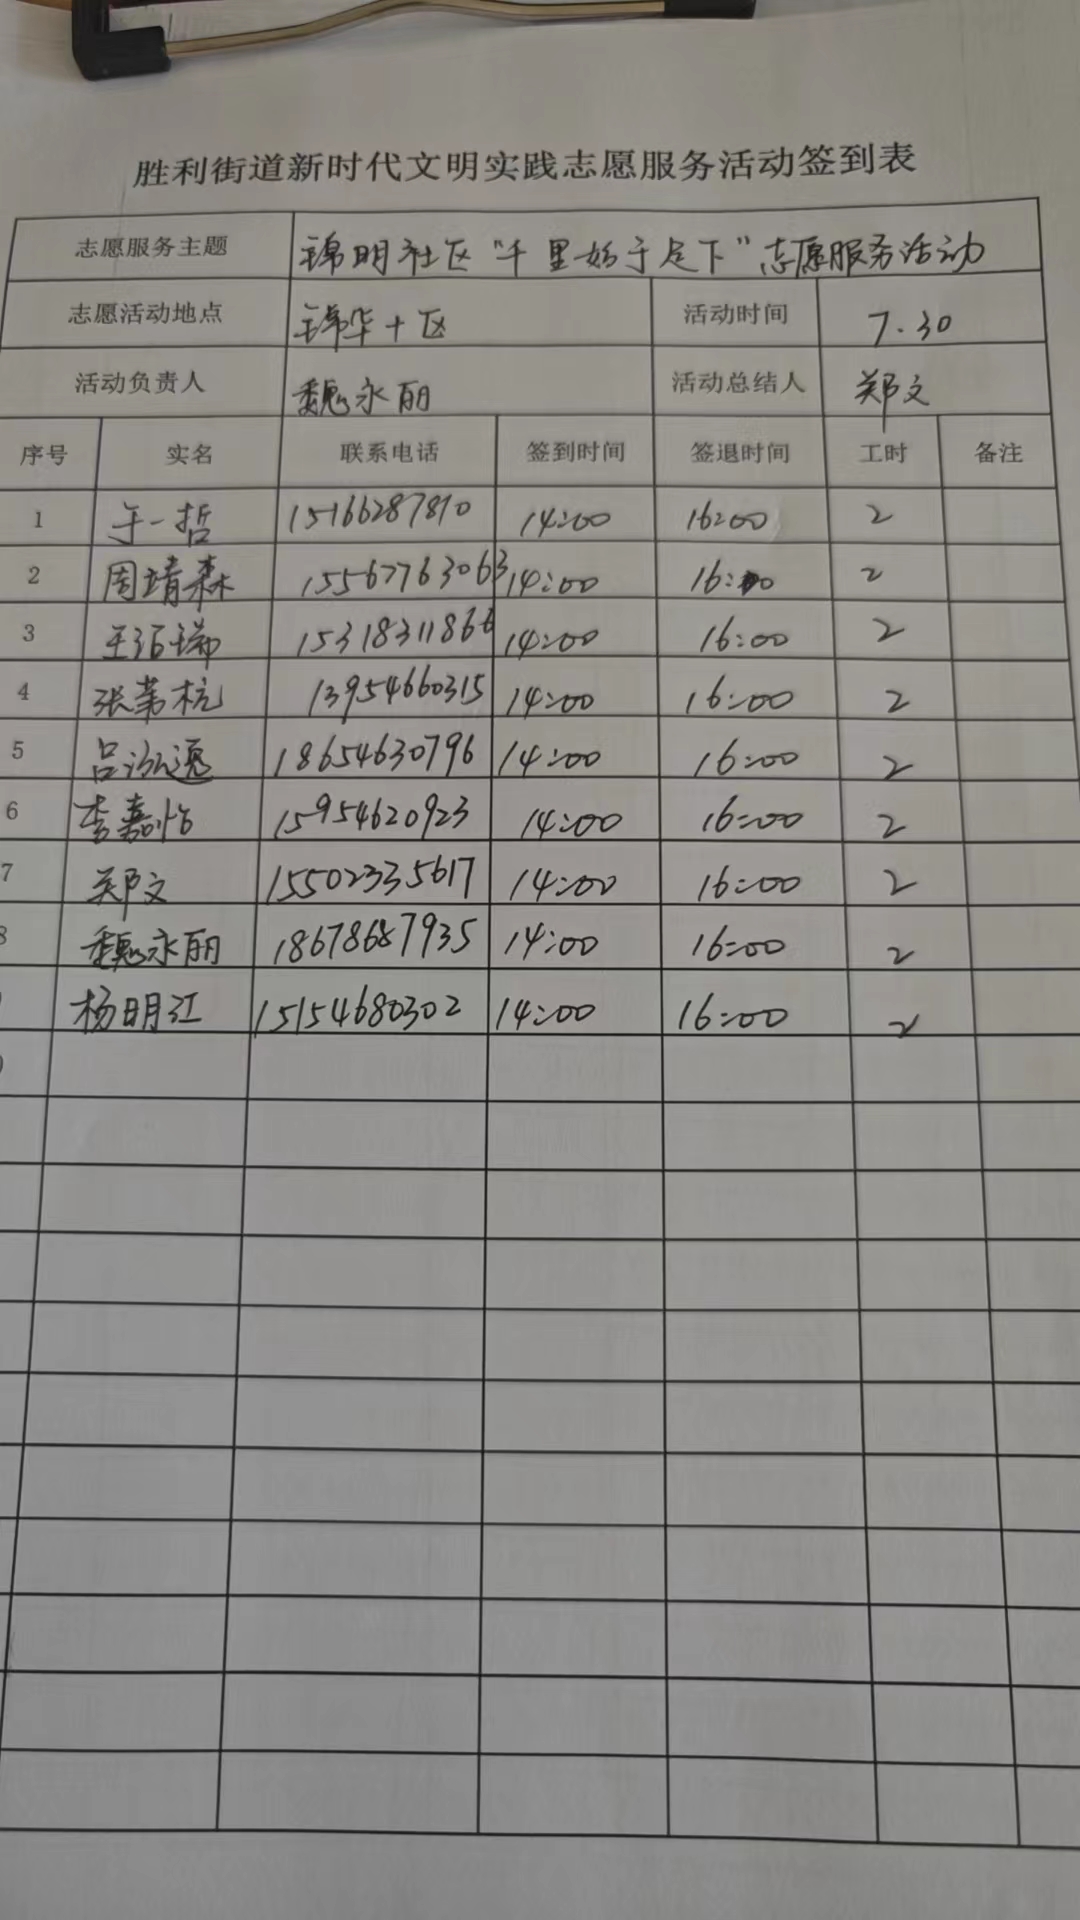 胜利街道新时代文明实践志愿服务活动签到表
志愿服务主题 锦明社区“千里始于足下”志愿服务活动
志愿活动地点 锦华十区 活动时间 7.30
活动负责人 魏永丽 活动总结人 郑文
序号 实名 联系电话 签到时间 签退时间 工时 备注
1 于一哲 15166287810 14:00 16:00 2
2 周靖森 15567763063 14:00 16:00 2
3 15318311866 14:00 16:00 2
4 13954660315 14:00 16:00 2
5 18654630796 14:00 16:00 2
6 李嘉怡 15954620923 14:00 16:00 2
7 郑文 15502335617 14:00 16:00 2
8 魏永丽 18678687935 14:00 16:00 2
杨明江 15154680302 14:00 16:00 2